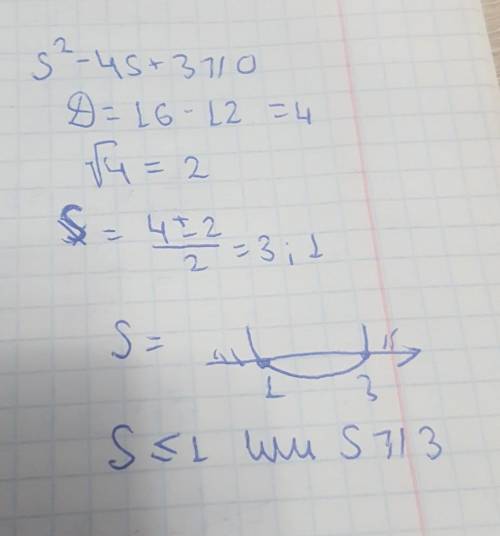 S² - 4S + 3 ⩾ 0
D = 16 - 12 = 4
√4 = 2
S = (4 ± 2)/2 = 3 ; 1
S =
1 3
S ≤ 1 или S ⩾ 3